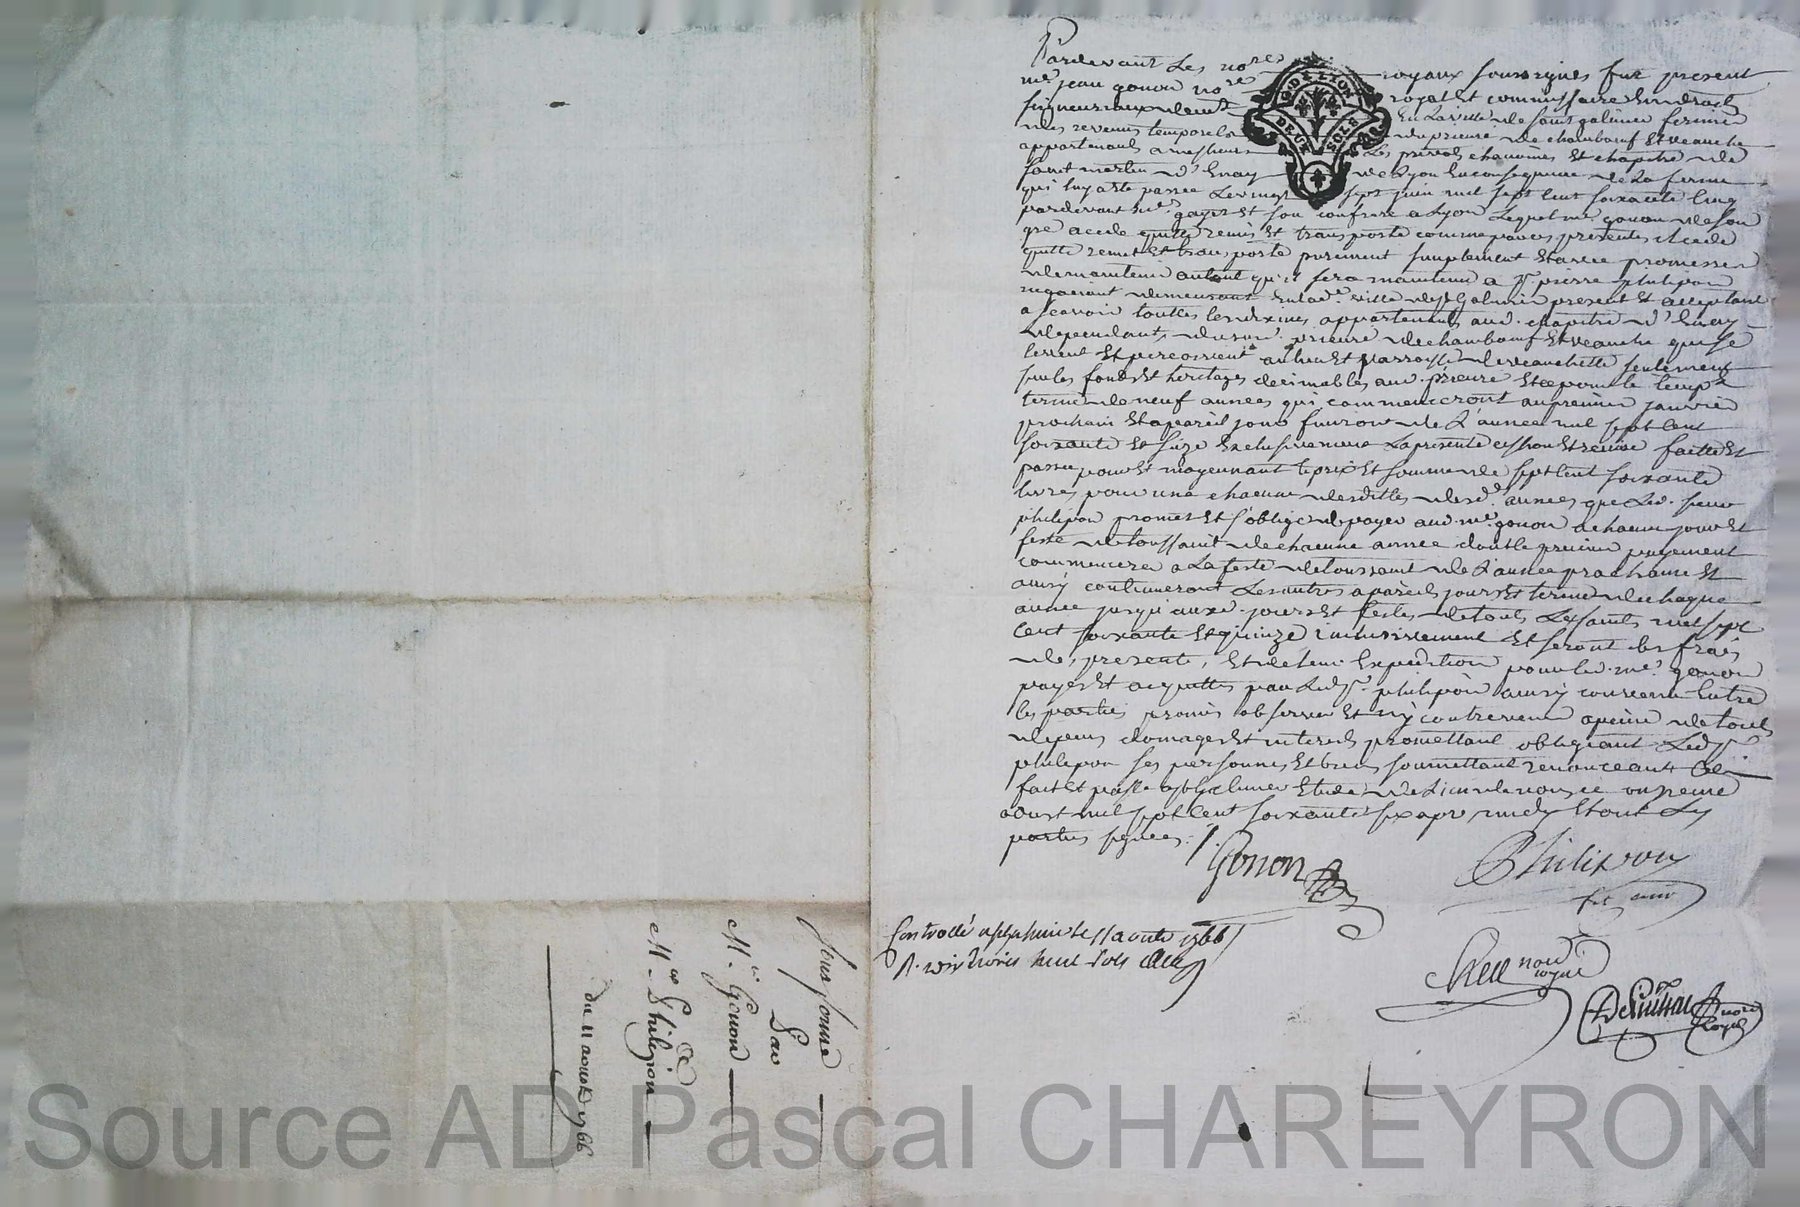 Pardevant Les no.res royaux soussignes fut present
me. jean gonon no.re royal Et commissaire En droits
seigneuriaux En La ville de saint galmier fermier
des revenus temporels du prieuré de chambœuf Et veauche
appartenants a messieurs Les prevot chanoines Et chapitre de
saint martin d'Enay de Lyon En consequence de La ferme
qui luy a Eté passée Le vingt sept juin mil sept cent soixante cinq
pardevant me. gayet Et son confrere a Lyon Lequel me. gonon de son
gré a cede quitte remis Et transporté comme par ces presentes il cede
quitte remet Et transporte purement simplement Et avec promesse
de maintenir autant qu'il sera maintenu a sr. pierre philipon
negociant demeurant En lad.e ville de st Galmier present Et acceptant
a scavoir touttes les dixmes appartenants aud. chapitre d'Enay
dependants dud. prieuré de chambœuf Et veauche qui se
levent Et percoivent au lieu Et parroisse de veauchette seulement
sur les fonds Et heritages decimables aud. prieuré Et ce pour le temps Et
terme de neuf années qui commenceront au premier janvier
prochain Et a pareil jour finiront de L'année mil sept cent
soixante Et seize Exclusivement La presente cession Et remise faitte Et
passée pour Et moyennant le prix Et somme de sept cent soixante
livres pour une chacune desdittes années que Led. sieur
philipon promet Et s'oblige de payer aud. me. gonon a chacun jour Et
feste de toussaint de chacune année dont le premier payement
commencera a La feste de toussaint de L'année prochaine Et
ainsy continueront Les autres a pareils jours Et terme de chaque
année jusqu'auxd. jours Et festes de touts Les saints mil sept
cent soixante Et quinze inclusivement Et seront les frais
des presentes, Et de leur Expedition pour led. me. gonon
payés Et acquittés par Led. sr. philipon ainsy convenu Entre
les parties promis observer Et n'y contrevenir a peine de tous
depens domages Et interests promettant obligeant Led. sr.
philipon ses personnes Et biens soumettant renonceant &
fait Et passé a st Galmier Etude de L'un de nous ce onzieme
aoust mil sept cent soixante six apres midy Et ont Les
parties signées.
Gonon Philipon
Controllé a st galmier le 11 aoust 1766
R. dix livres huit sols
no.re royal
no.re Royal
Sous ferme
Par
Me. Gonon
a
Mr. Philipon
du 11 aoust 1766
Source AD Pascal CHAREYRON